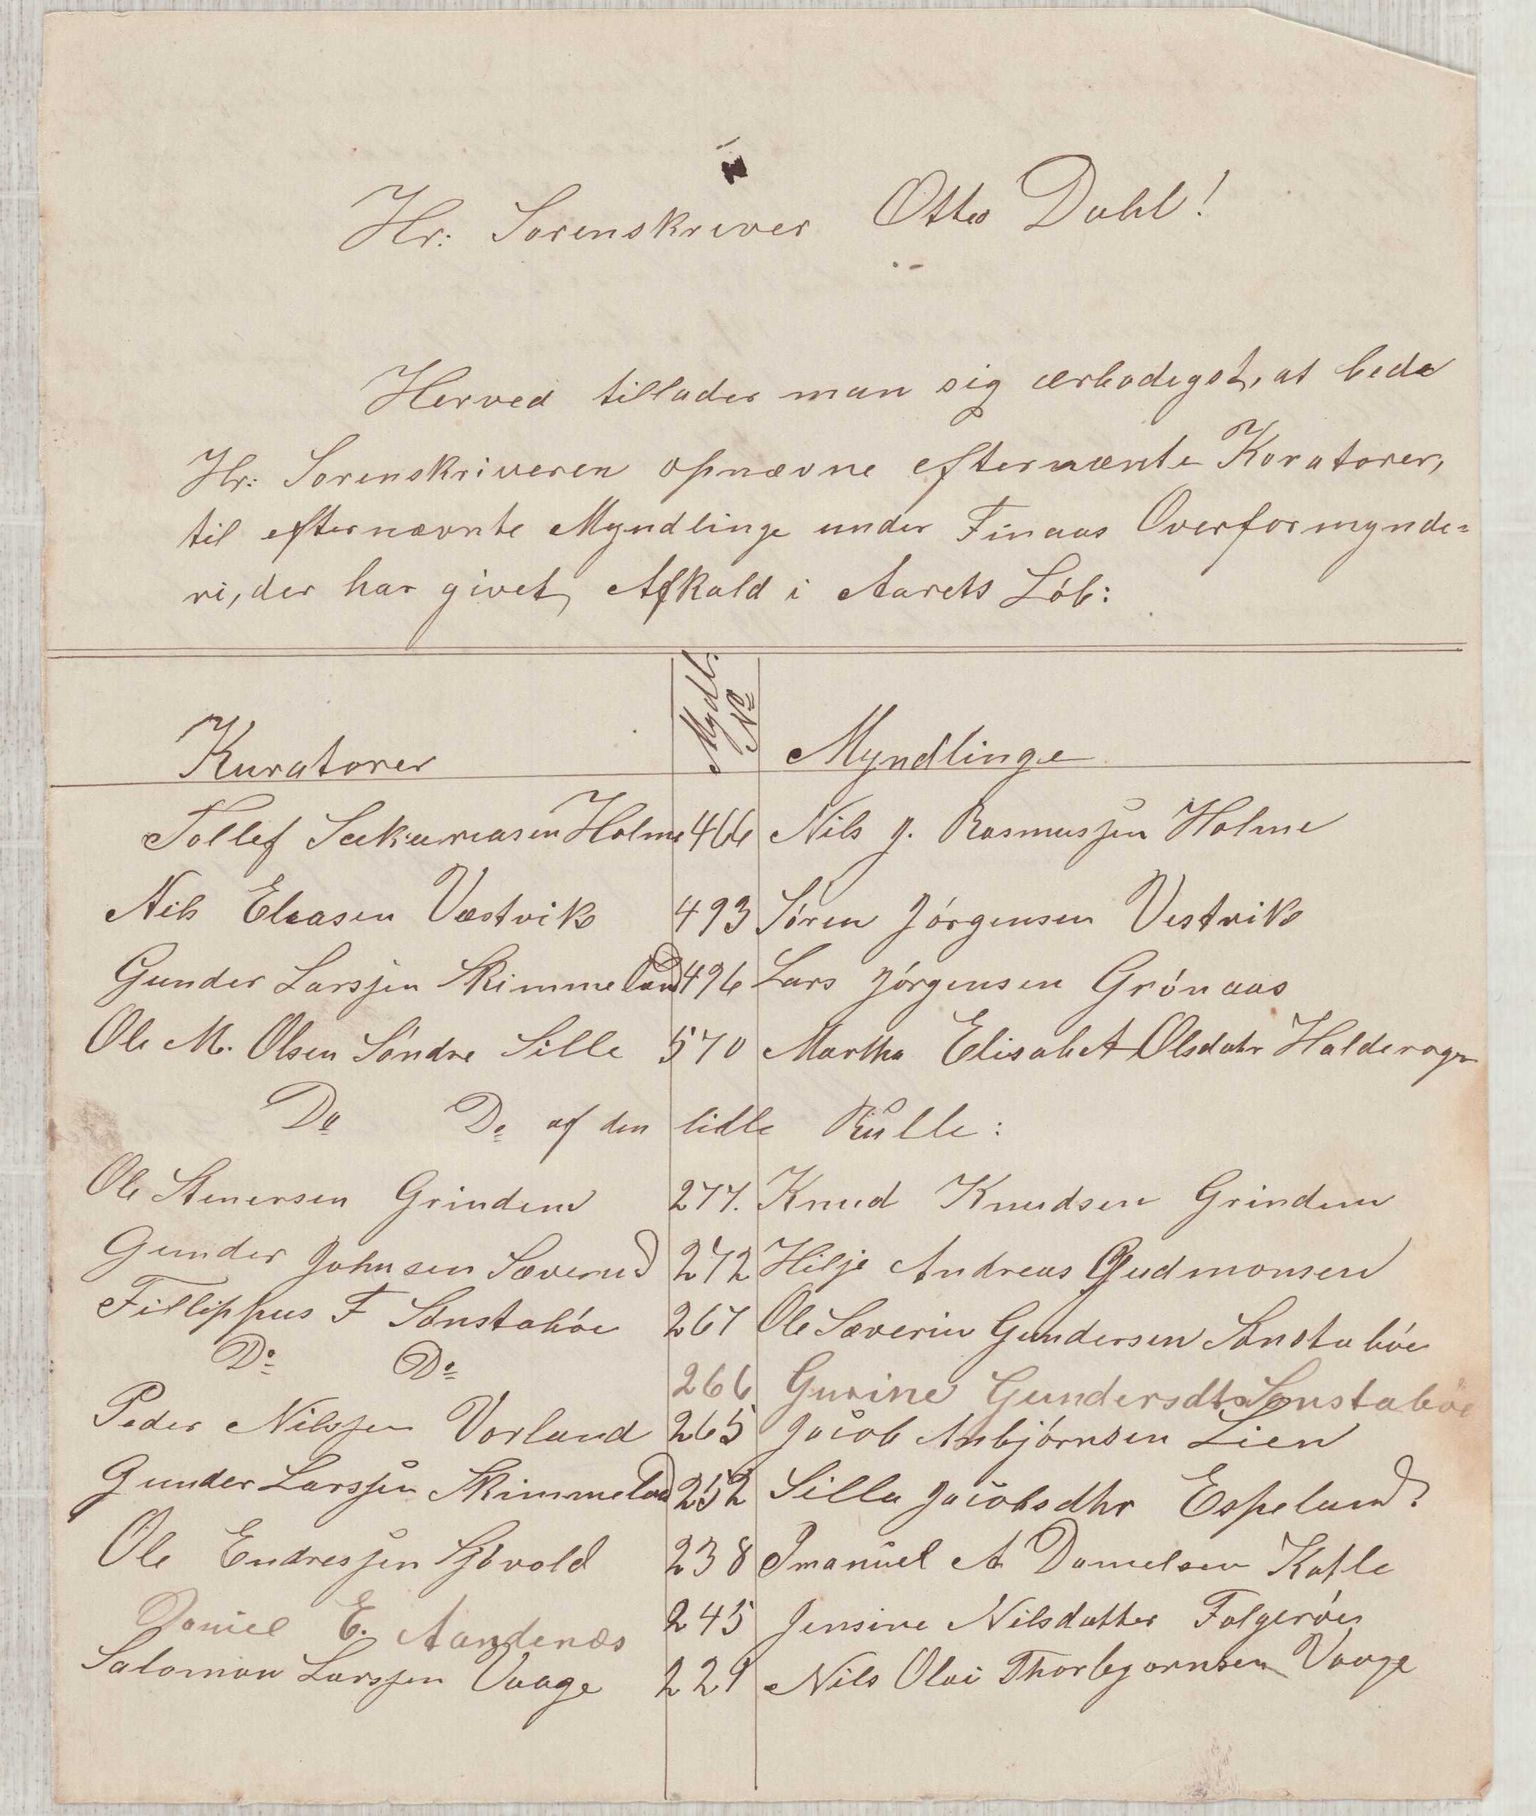 Hr: Sorenskriver Otto Dahl!
Herved tillader man sig ærbødigst, at bede
Hr: Sorenskriveren opnævne efternænte Koratorer,
til efternævnte Myndlinge under Finaas Overformynde=
ri, der har givet Afkald i Aarets Löb:
Kuratorer Myndl. No Myndlinge
Tollef Sakariasen Holme 466 Nils J. Rasmussen Holme
Nils Eliasen Vestvik 493 Sören Jörgensen Vestvik
Gunder Larssen Skimmeland 496 Lars Jörgensen Grönaas
Ole M. Olsen Söndre Sille 570 Martha Elisabet Olsdatr Halderager
Do Do af den lidle Rulle:
Ole Stenersen Grindem 277. Knud Knudsen Grindem
Gunder Johnsen Sæverud 272 Hilje Andreas Gudmonsen
Fillippus F Sönstaböe 267 Ole Sæverin Gundersen Sönstaböe
Do Do 266 Gurine Gundersdtr Sønstaböe
Peder Nilssen Vorland 265 Jacob Anbjörnsen Lien
Gunder Larssen Skimmeland 252 Silla Jacobsdtr Espeland.
Ole Endressen Sjövold 238 Imanuel A Danielsen Katle
Daniel E. Aandenæs 245 Jensine Nilsdatter Folgeröen
Salomon Larssen Vaage 229 Nils Olai Thorbjornsen Vaage